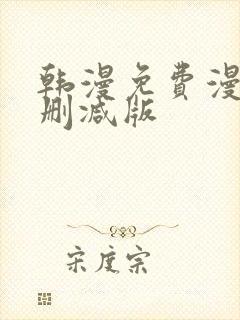 韩漫免费漫
删减版
宋度宗